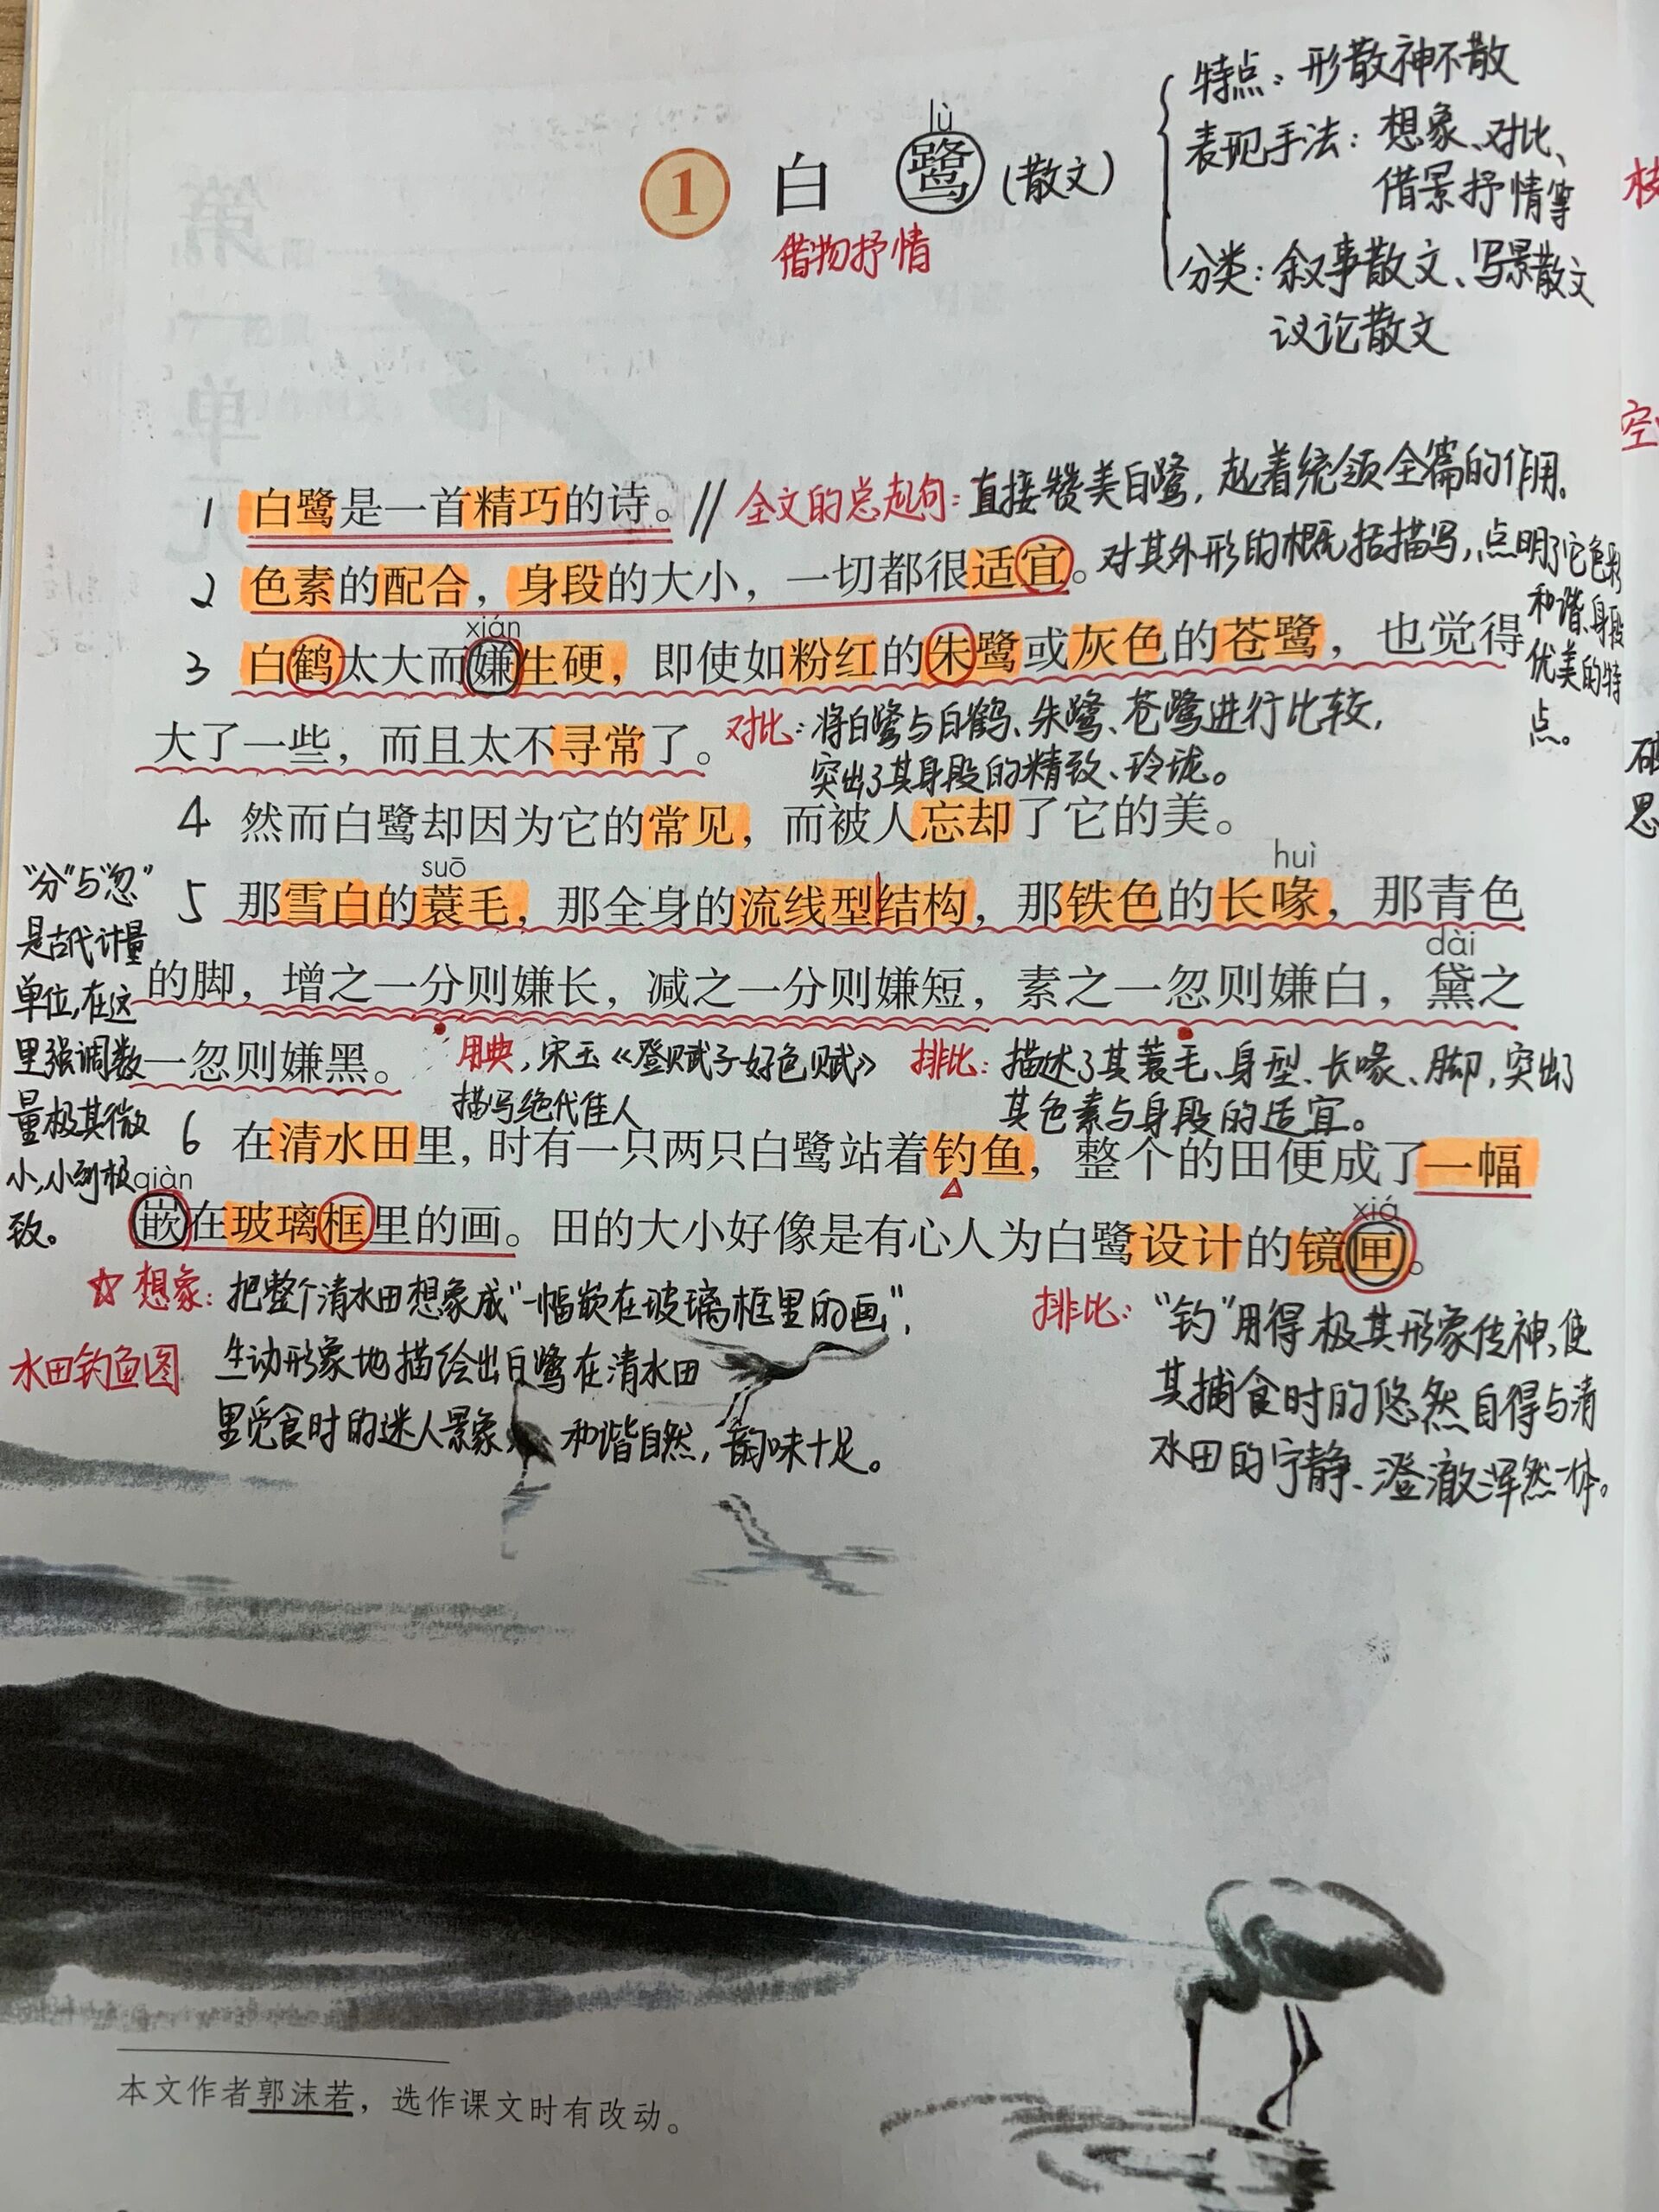 特点：形散神不散
lù
1 白 鹭 (散文)
表现手法：想象、对比、
借景抒情等
借物抒情
分类：叙事散文、写景散文
议论散文
1 白鹭是一首精巧的诗。// 全文的总起句：直接赞美白鹭，起着统领全篇的作用。
2 色素的配合，身段的大小，一切都很适宜。对其外形的概括描写，点明了它色彩
和谐、身段
优美的特
点。
xián
3 白鹤太大而嫌生硬，即使如粉红的朱鹭或灰色的苍鹭，也觉得
大了一些，而且太不寻常了。对比：将白鹭与白鹤、朱鹭、苍鹭进行比较，
突出了其身段的精致、玲珑。
4 然而白鹭却因为它的常见，而被人忘却了它的美。
suō huì
5 那雪白的蓑毛，那全身的流线型结构，那铁色的长喙，那青色
dài
的脚，增之一分则嫌长，减之一分则嫌短，素之一忽则嫌白，黛之
一忽则嫌黑。
"分"与"忽"
是古代计量
单位，在这
里强调数
量极其微
小，小到极
致。
用典，宋玉《登赋子好色赋》
描写绝代佳人
排比：描述了其蓑毛、身型、长喙、脚，突出了
其色素与身段的适宜。
6 在清水田里，时有一只两只白鹭站着钓鱼，整个的田便成了一幅
qiàn xiá
嵌在玻璃框里的画。田的大小好像是有心人为白鹭设计的镜匣。
☆想象：把整个清水田想象成"一幅嵌在玻璃框里的画"，
水田钓鱼图 生动形象地描绘出白鹭在清水田
里觅食时的迷人景象，和谐自然，韵味十足。
排比："钓"用得极其形象传神，使
其捕食时的悠然自得与清
水田的宁静、澄澈浑然一体。
本文作者郭沫若，选作课文时有改动。